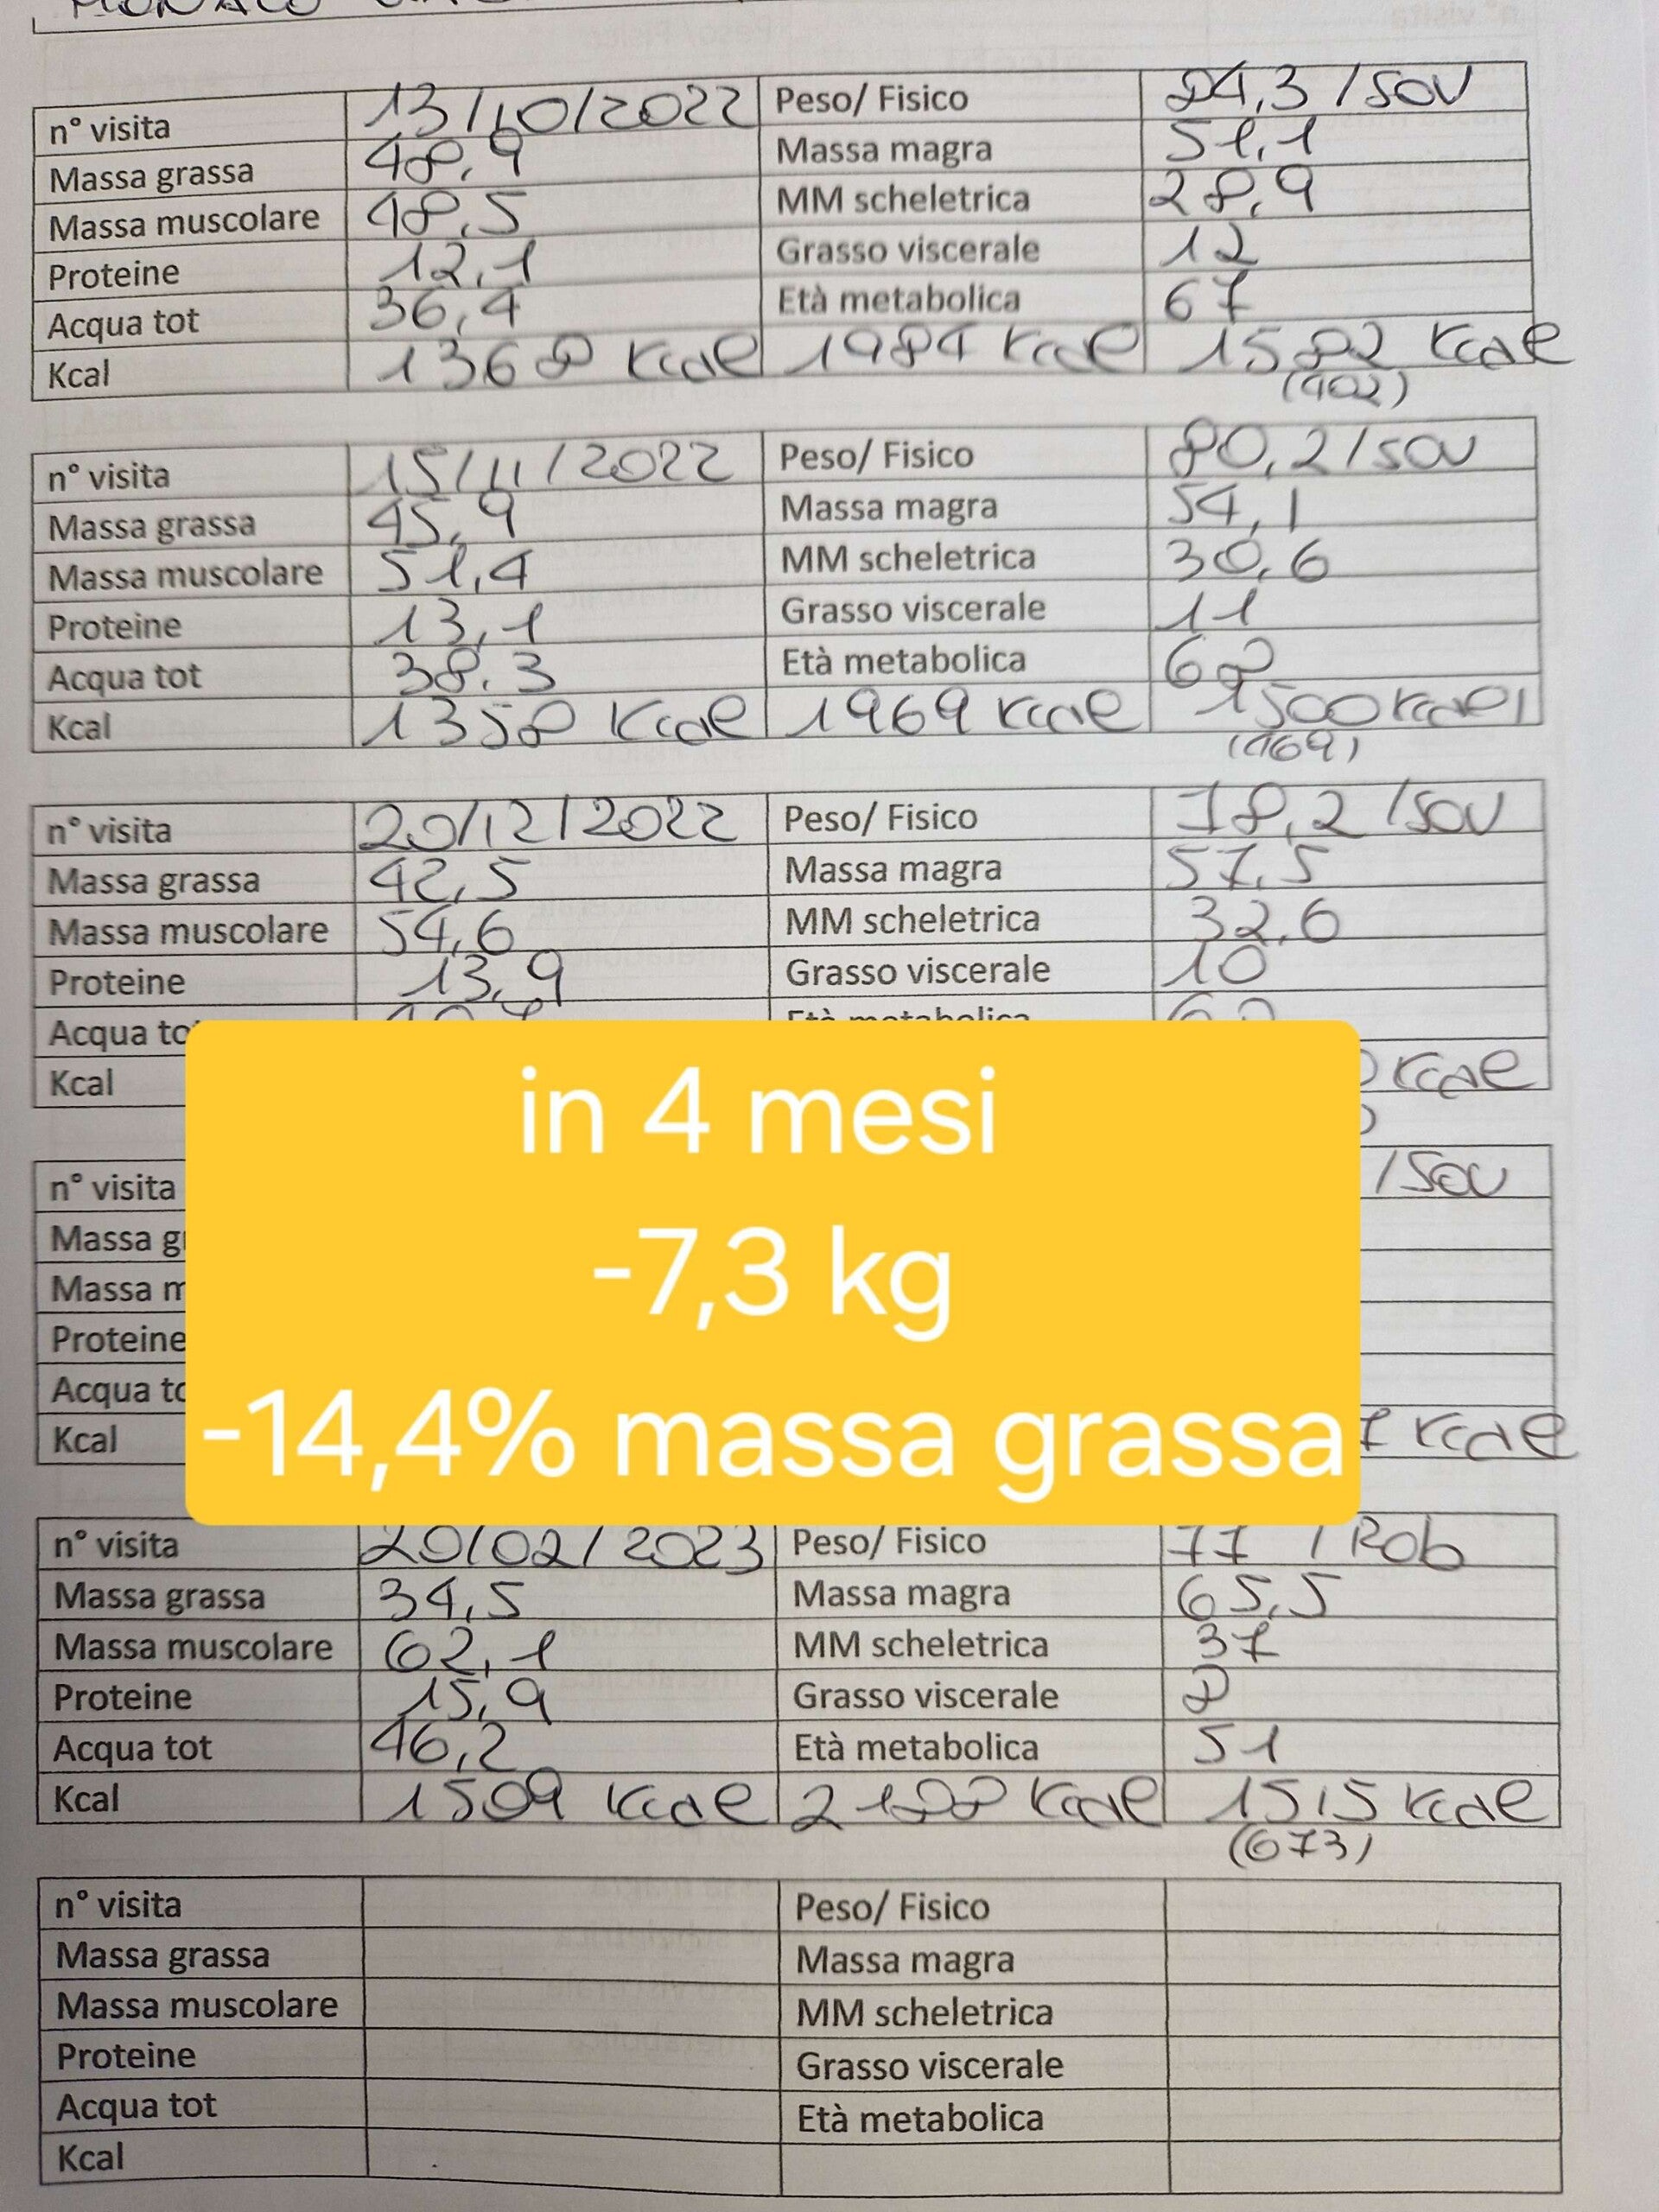 n° visita 13/10/2022 Peso/ Fisico 84,3 /sov
Massa grassa 48,9 Massa magra 51,1
Massa muscolare 48,5 MM scheletrica 28,9
Proteine 12,1 Grasso viscerale 12
Acqua tot 36,4 Età metabolica 67
Kcal 1368 Kcal 1984 Kcal 1582 Kcal
(402)
n° visita 15/11/2022 Peso/ Fisico 80,2/sov
Massa grassa 45,9 Massa magra 54,1
Massa muscolare 51,4 MM scheletrica 30,6
Proteine 13,1 Grasso viscerale 11
Acqua tot 38,3 Età metabolica
Kcal 1358 Kcal 1969 Kcal 1500 Kcal
(469)
n° visita 20/12/2022 Peso/ Fisico 78,2 /sov
Massa grassa 42,5 Massa magra 57,5
Massa muscolare 54,6 MM scheletrica 32,6
Proteine 13,9 Grasso viscerale 10
Acqua to Età metabolica
Kcal Kcal
in 4 mesi
-7,3 kg
-14,4% massa grassa
n° visita /sov
Massa g
Massa m
Proteine
Acqua to
Kcal 7 Kcal
n° visita 20/02/2023 Peso/ Fisico 77 /Rob
Massa grassa 34,5 Massa magra 65,5
Massa muscolare 62,1 MM scheletrica 37
Proteine 15,9 Grasso viscerale 8
Acqua tot 46,2 Età metabolica 51
Kcal 1509 Kcal 2188 Kcal 1515 Kcal
(673)
n° visita Peso/ Fisico
Massa grassa Massa magra
Massa muscolare MM scheletrica
Proteine Grasso viscerale
Acqua tot Età metabolica
Kcal